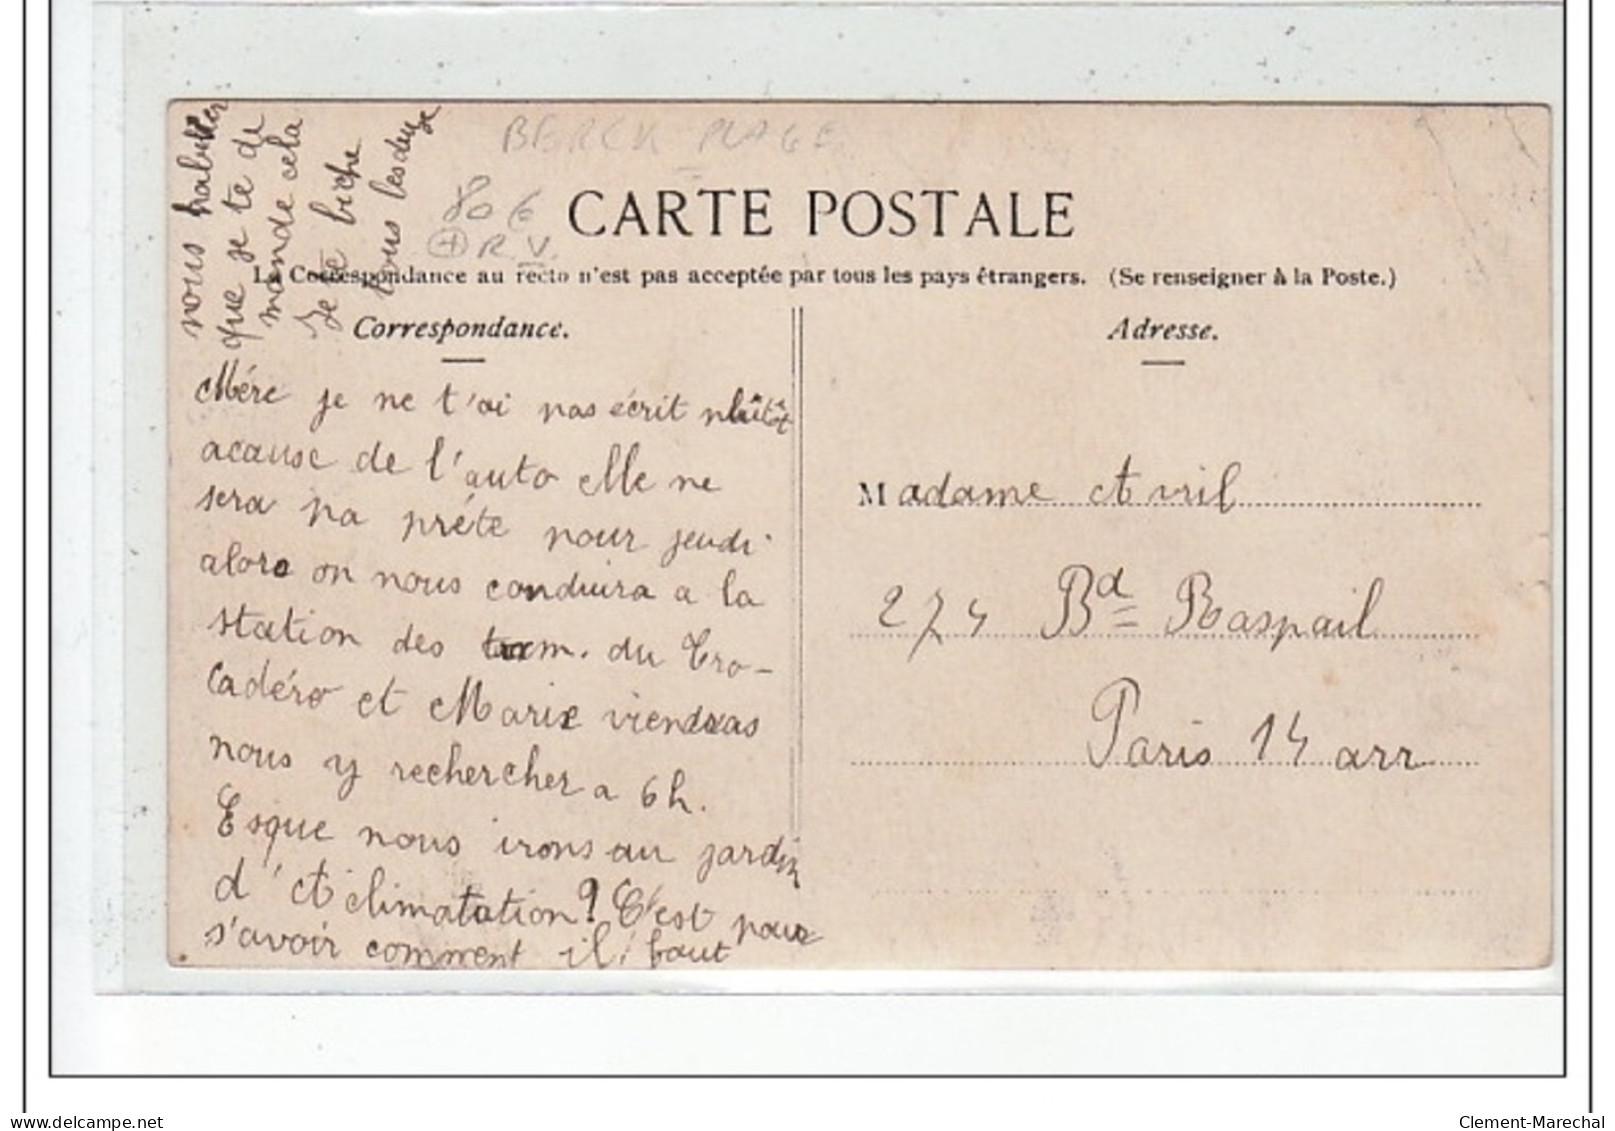 BERCK PLAGE
80 €
+ R V.
CARTE POSTALE
La Correspondance au recto n'est pas acceptée par tous les pays étrangers. (Se renseigner à la Poste.)
Correspondance.
Adresse.
Mére je ne t'ai pas écrit plutôt
acause de l'auto elle ne
sera pa préte pour jeudi
alors on nous conduira a la
station des tram. du Tro-
cadéro et Marie viendras
nous y rechercher a 6h.
Esque nous irons au jardin
d'Acclimatation? C'est pour
s'avoir comment il faut
nous habiller
que je te de
mande cela
Je te biche
tous les deux
Madame Avril
274 Bd Raspail
Paris 14 arr
delcampe.net
Clement-Marechal